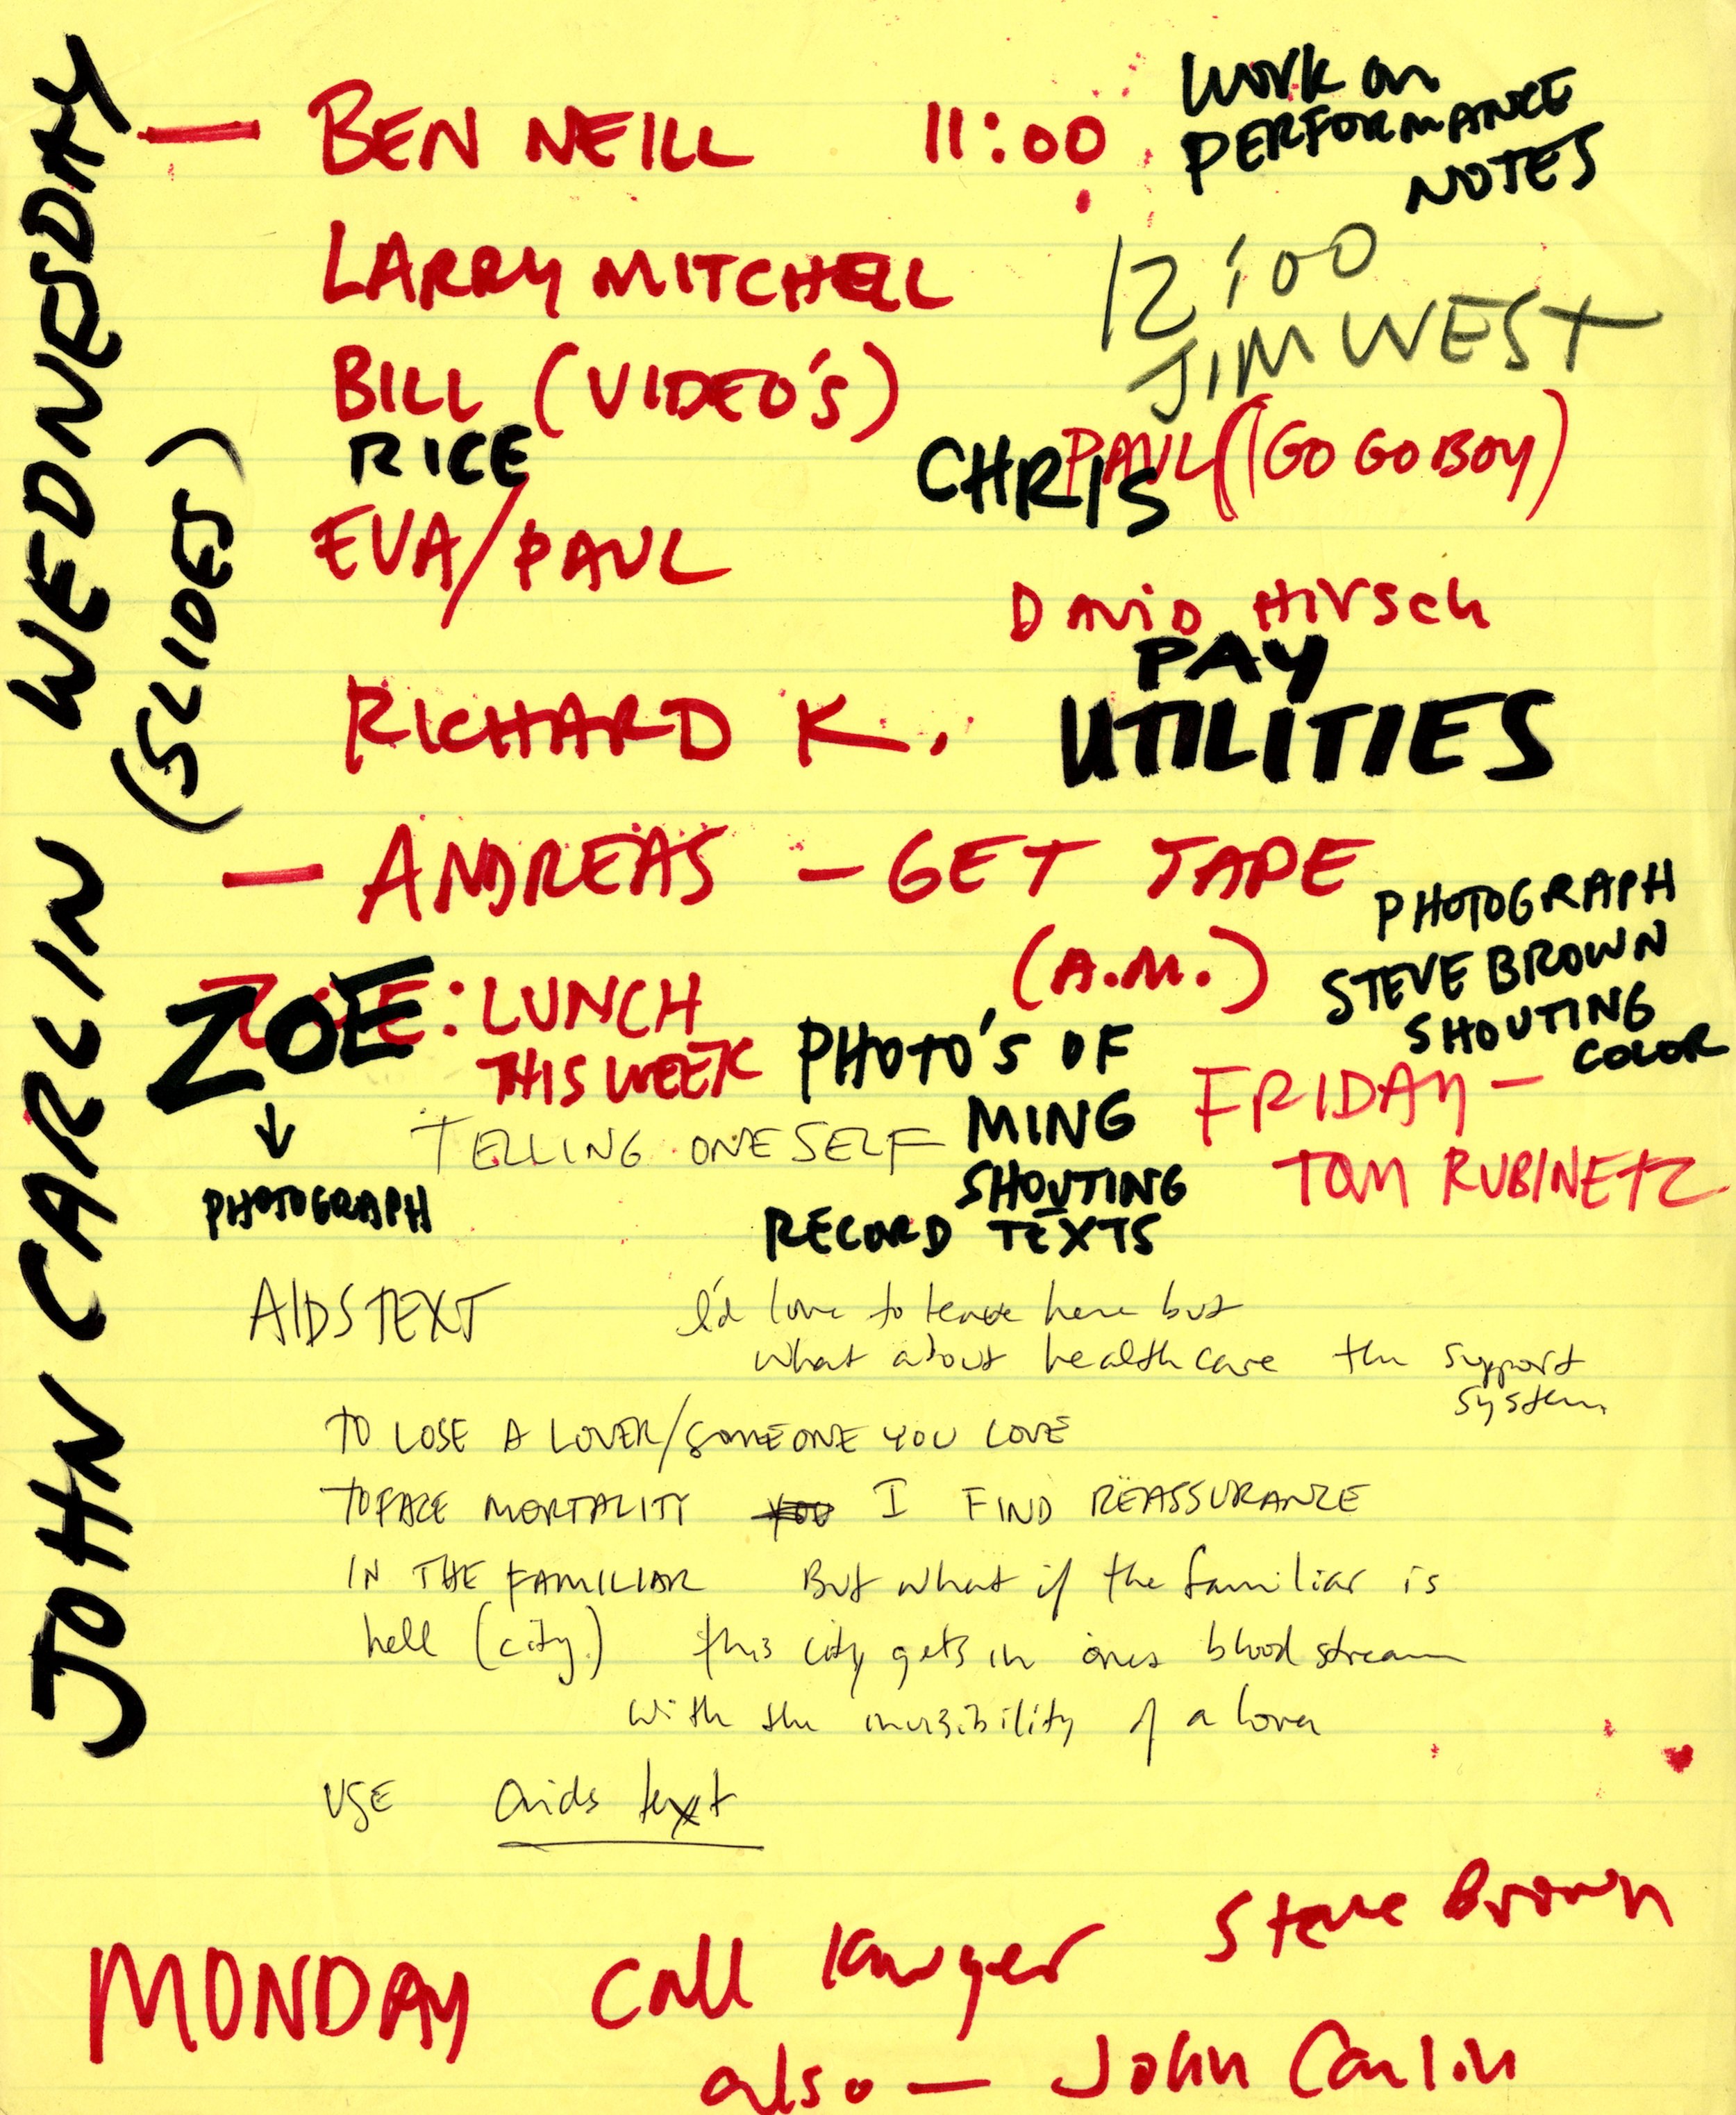 JOHN CARLIN WEDNESDAY
(SLIDES)
— BEN NEILL 11:00
WORK ON
PERFORMANCE
NOTES
LARRY MITCHELL
12:00
JIM WEST
BILL (VIDEO'S)
RICE
CHRIS PAUL (GO GO BOY)
EVA/PAUL
DAVID HIRSCH
PAY
UTILITIES
RICHARD K.
— ANDREAS — GET TAPE
(A.M.)
PHOTOGRAPH
STEVE BROWN
SHOUTING
COLOR
ZOE: LUNCH
THIS WEEK
ZOE
↓
PHOTOGRAPH
PHOTO'S OF
MING
SHOUTING
RECORD TEXTS
FRIDAY —
TOM RUBINETZ
TELLING ONESELF
AIDS TEXT
I'd love to leave here but
what about healthcare the support
system
TO LOSE A LOVER/SOMEONE YOU LOVE
TO FACE MORTALITY YOU I FIND REASSURANCE
IN THE FAMILIAR But what if the familiar is
hell (city) this city gets in ones blood stream
with the invisibility of a lover
USE aids text
MONDAY call lawyer Steve Brown
also — John Carlin